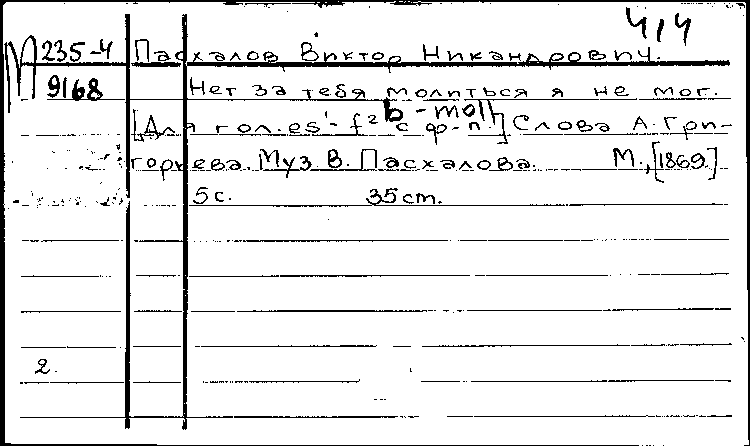 4/4
М 235-4 Пасхалов Виктор Никандрович.
9168 Нет за тебя молиться я не мог.
b-moll
[Для гол. es'-f² с ф-п.] Слова А. Гри-
горьева. Муз. В. Пасхалова. М., [1869.]
5 с. 35 cm.
2.